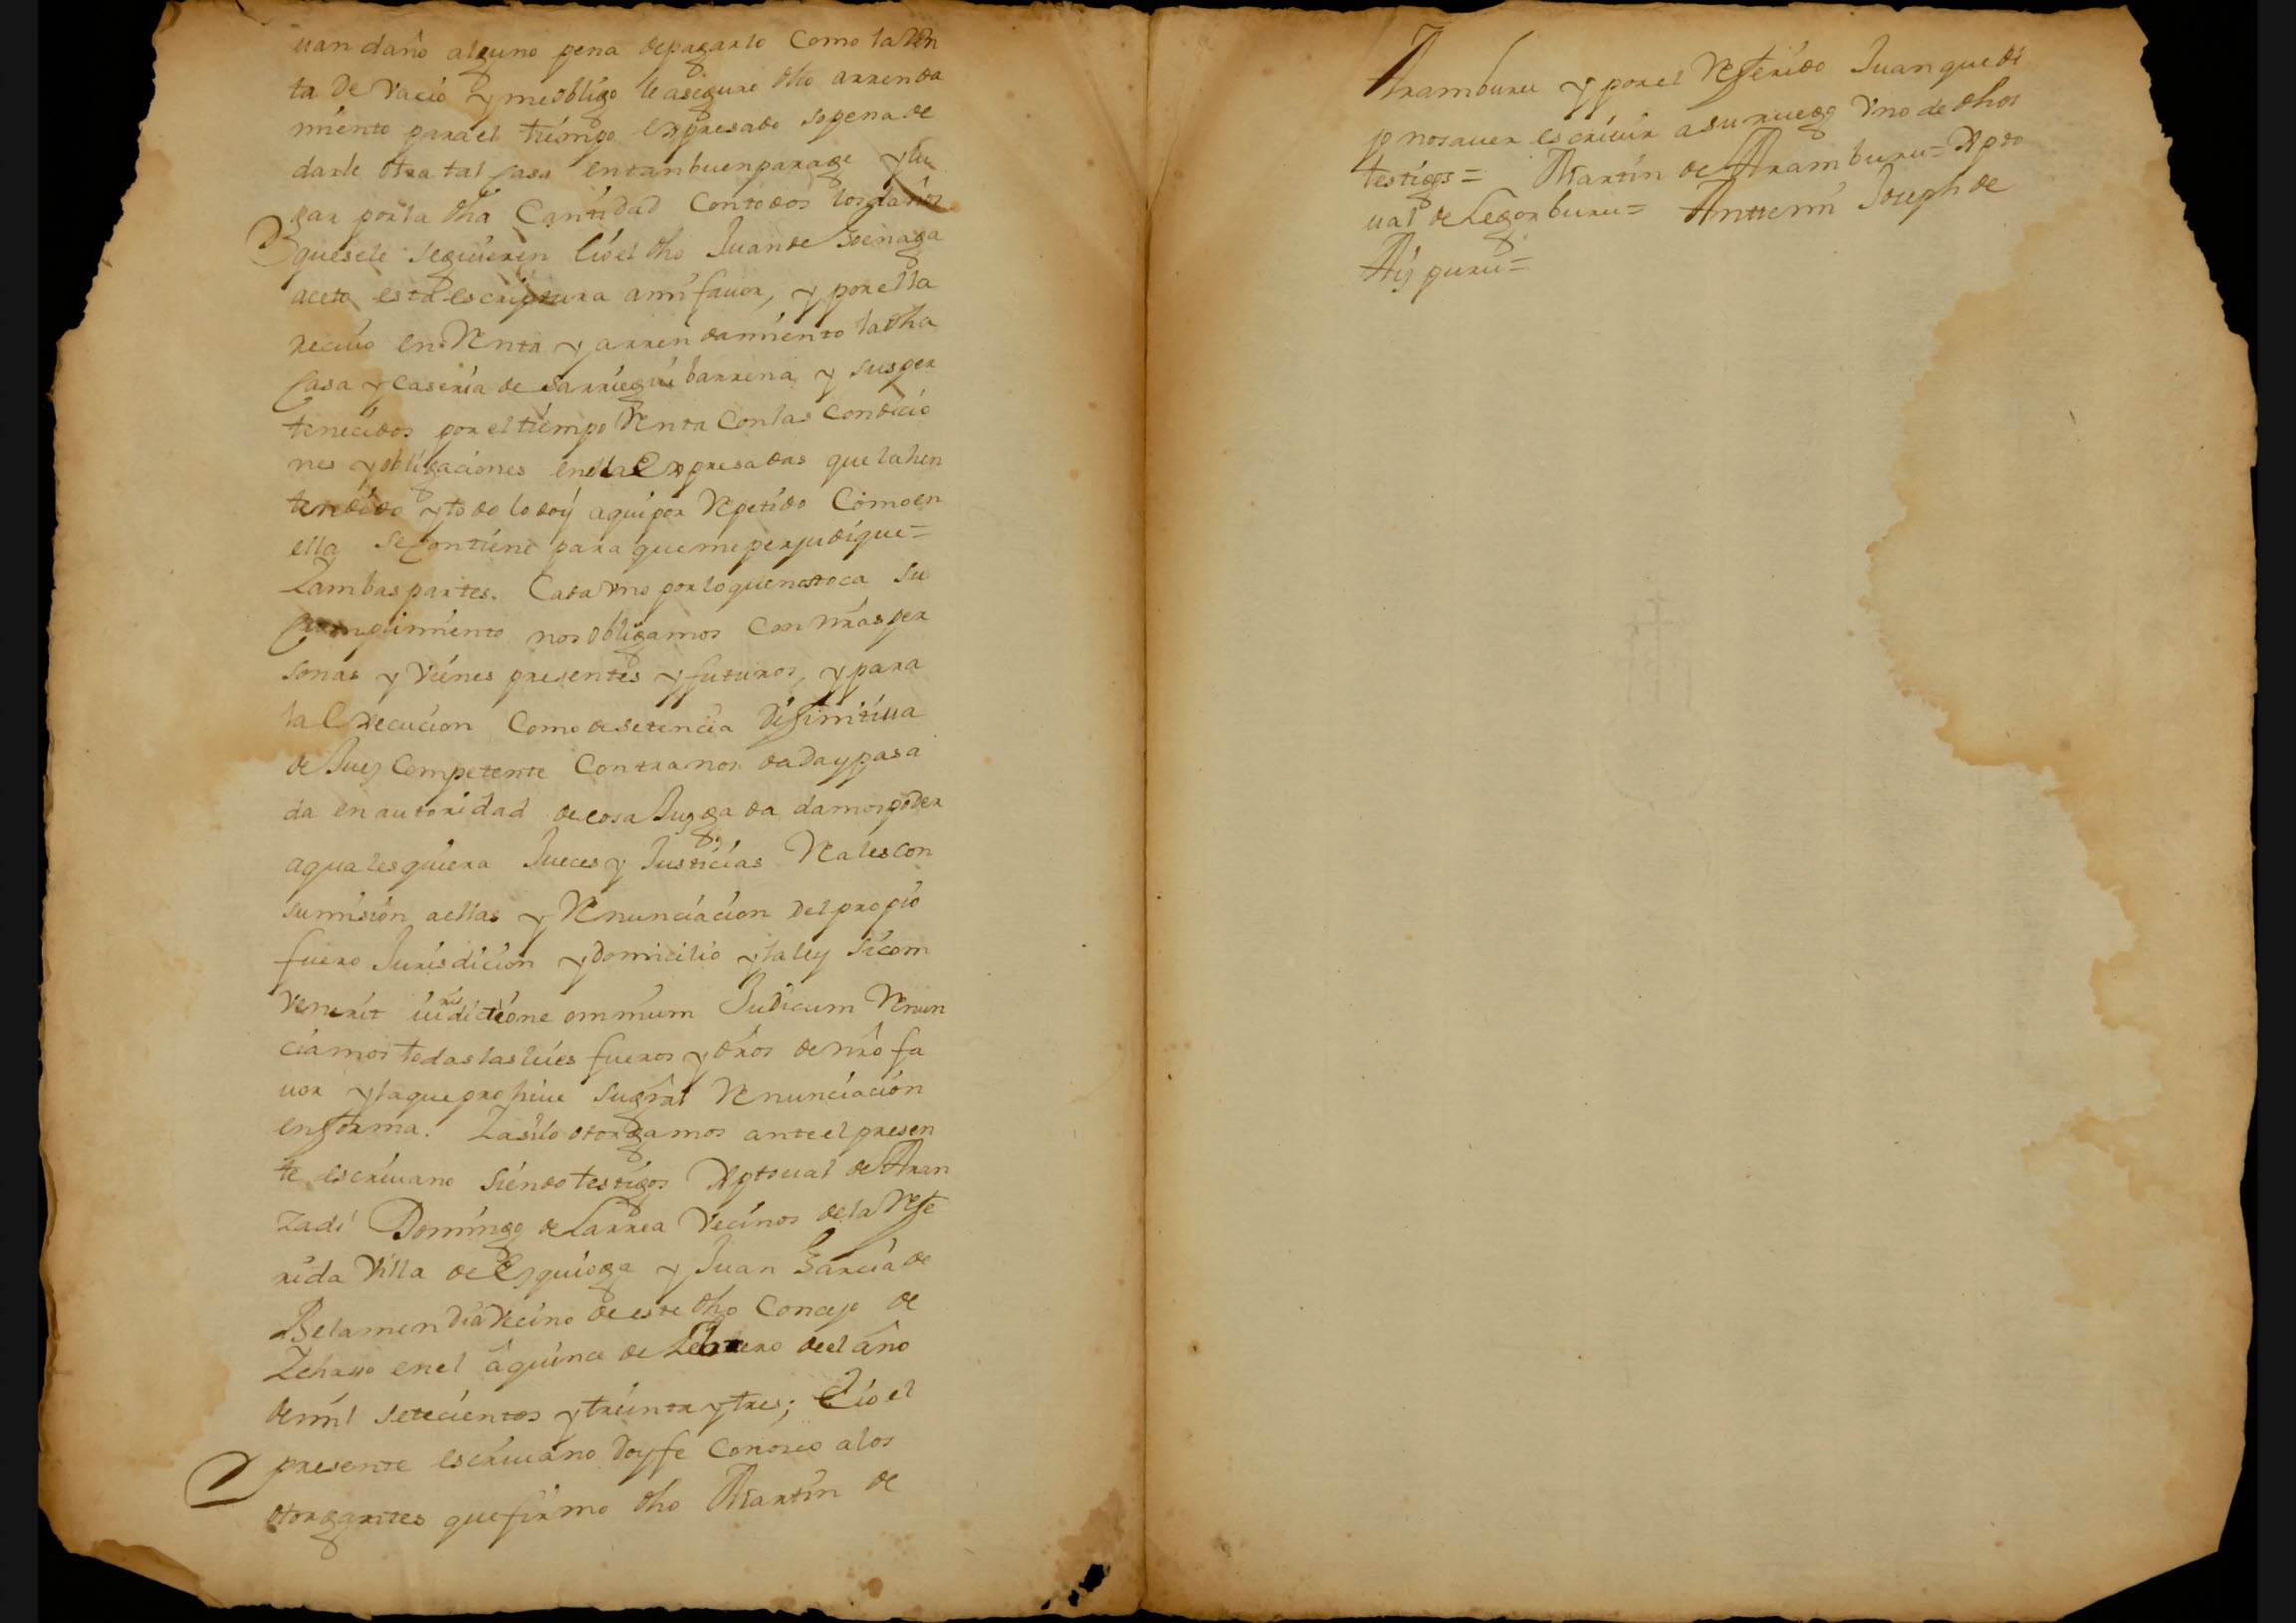 uan daño alguno pena depagarlo Como laRen
ta De Vacio y meobligo leaseguro dho arrenda
miento parael tiémpo Expresado sopenade
darle otra tal Casa entanbuenparage y lu
gar porla dha Cantidad Contodos losdaños
quesele seguieren Eio el dho Juande Goenaga
aceto esta escriptura amifauor, y porella
reciuo en Renta y arrendamiento ladha
Casa y Caseria de Sarriegui barrena y susper
tenecidos por eltiémpo Renta Conlas Condicio
nes yobligaciones enella Expresadas que lahen
tendido y todo lo doy aquipor Repetido Comoen
ella seContiene para quemeperjudique=
Zambas partes. Cada Vno porloquenostoca su
Cumplimiento nos obligamos Con nras per
sonas y Vienes presentes y futuros, y para
la Execucion Como desetencia Difinitiua
de Juez Competente Contranos dadaypasa
da en autoridad de cosa Juzgada damospoder
aqualesquiera Jueces y Justicias Reales con
sumision aellas y Renunciacion Del propio
fuero Jurisdicion y Domicilio y la ley sicom
Venerit iurisdictione omnium Judicum Renun
ciamos todaslasleies fueros y dros de nro fa
uor y laque prohiue su gral Renunciación
enforma. Zasilo otorgamos anteel presen
te escriuano siendo testigos Xptoual de Aran
zadi Domingo de Larrea Vecinos dela Refe
rida Villa de Ezquioga y Juan Garcia de
Belamendia Vecino de este dho Concejo de
Zehasso enel a quince de Febrero deel año
demil setecientos y treinta y tres; Eio el
presente escriuano Doyfe Conozco alos
otorgantes quefirmo dho Martin de
Aramburu y porel Referido Juan que di
jo nosauer escriuir asuruego Vno de dhos
testigos= Martin de Aramburu= Xpto
ual de Legorburu= Anttemi Joseph de
Aizpuru=